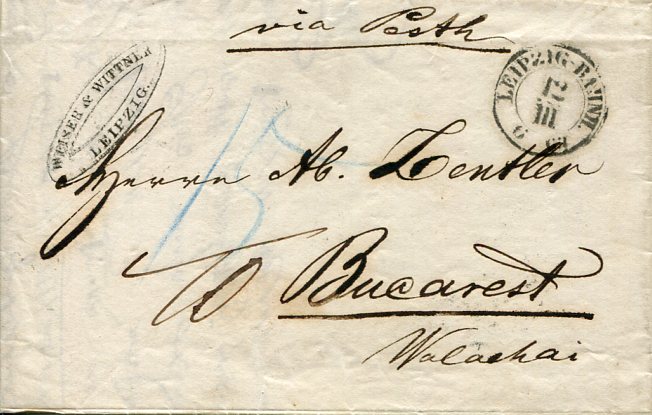 via Pesth
WEISER & WITTNER
LEIPZIG.
LEIPZIG-BAHNH.
12
III
Herrn Ab. Zentler
15
Bucarest
Walachai